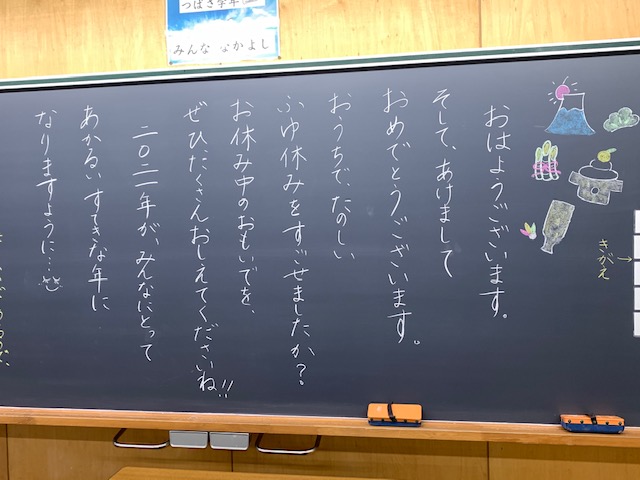 つばさ学年
みんな なかよし
おはようございます。
そして、あけまして
おめでとうございます。
おうちで、たのしい
ふゆ休みをすごせましたか？
お休み中のおもいでを、
ぜひたくさんおしえてくださいね!!
二〇二一年が、みんなにとって
あかるいすてきな年に
なりますように…
きがえ→